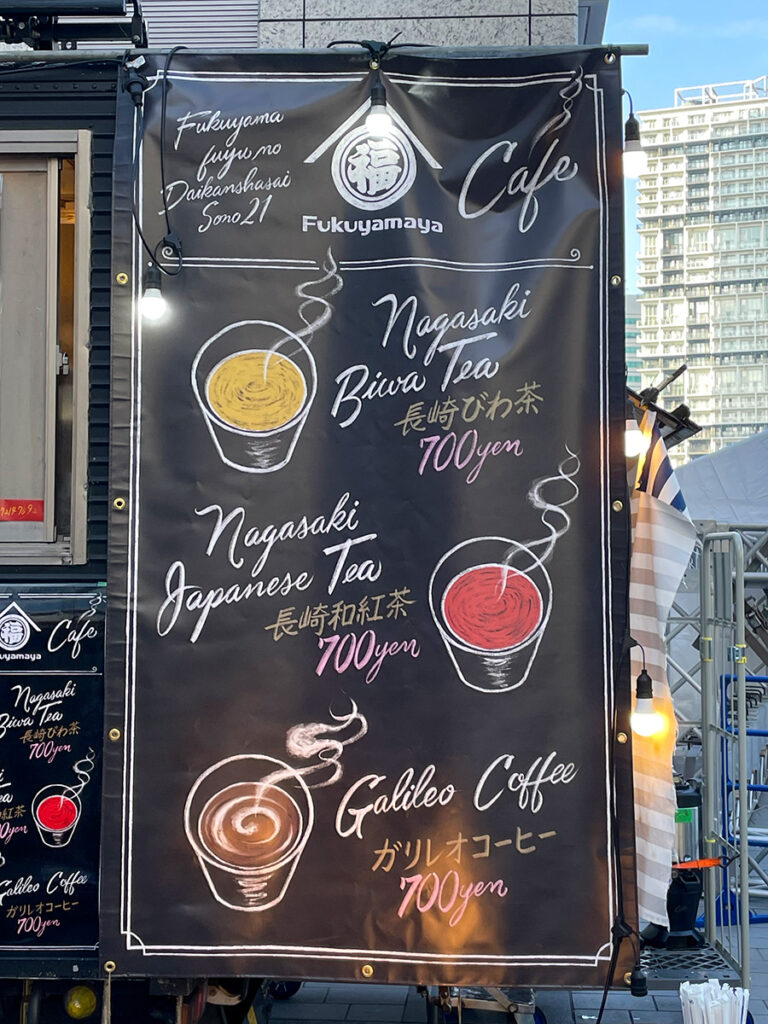 Fukuyama
fuyu no
Daikanshasai
Sono 21
福
Fukuyamaya
Cafe
Nagasaki
Biwa Tea
長崎びわ茶
700yen
Nagasaki
Japanese Tea
長崎和紅茶
700yen
Galileo Coffee
ガリレオコーヒー
700yen
福
uyamaya
Cafe
Nagasaki
Biwa Tea
長崎びわ茶
700yen
ea
紅茶
0yen
Galileo Coffee
ガリレオコーヒー
700yen